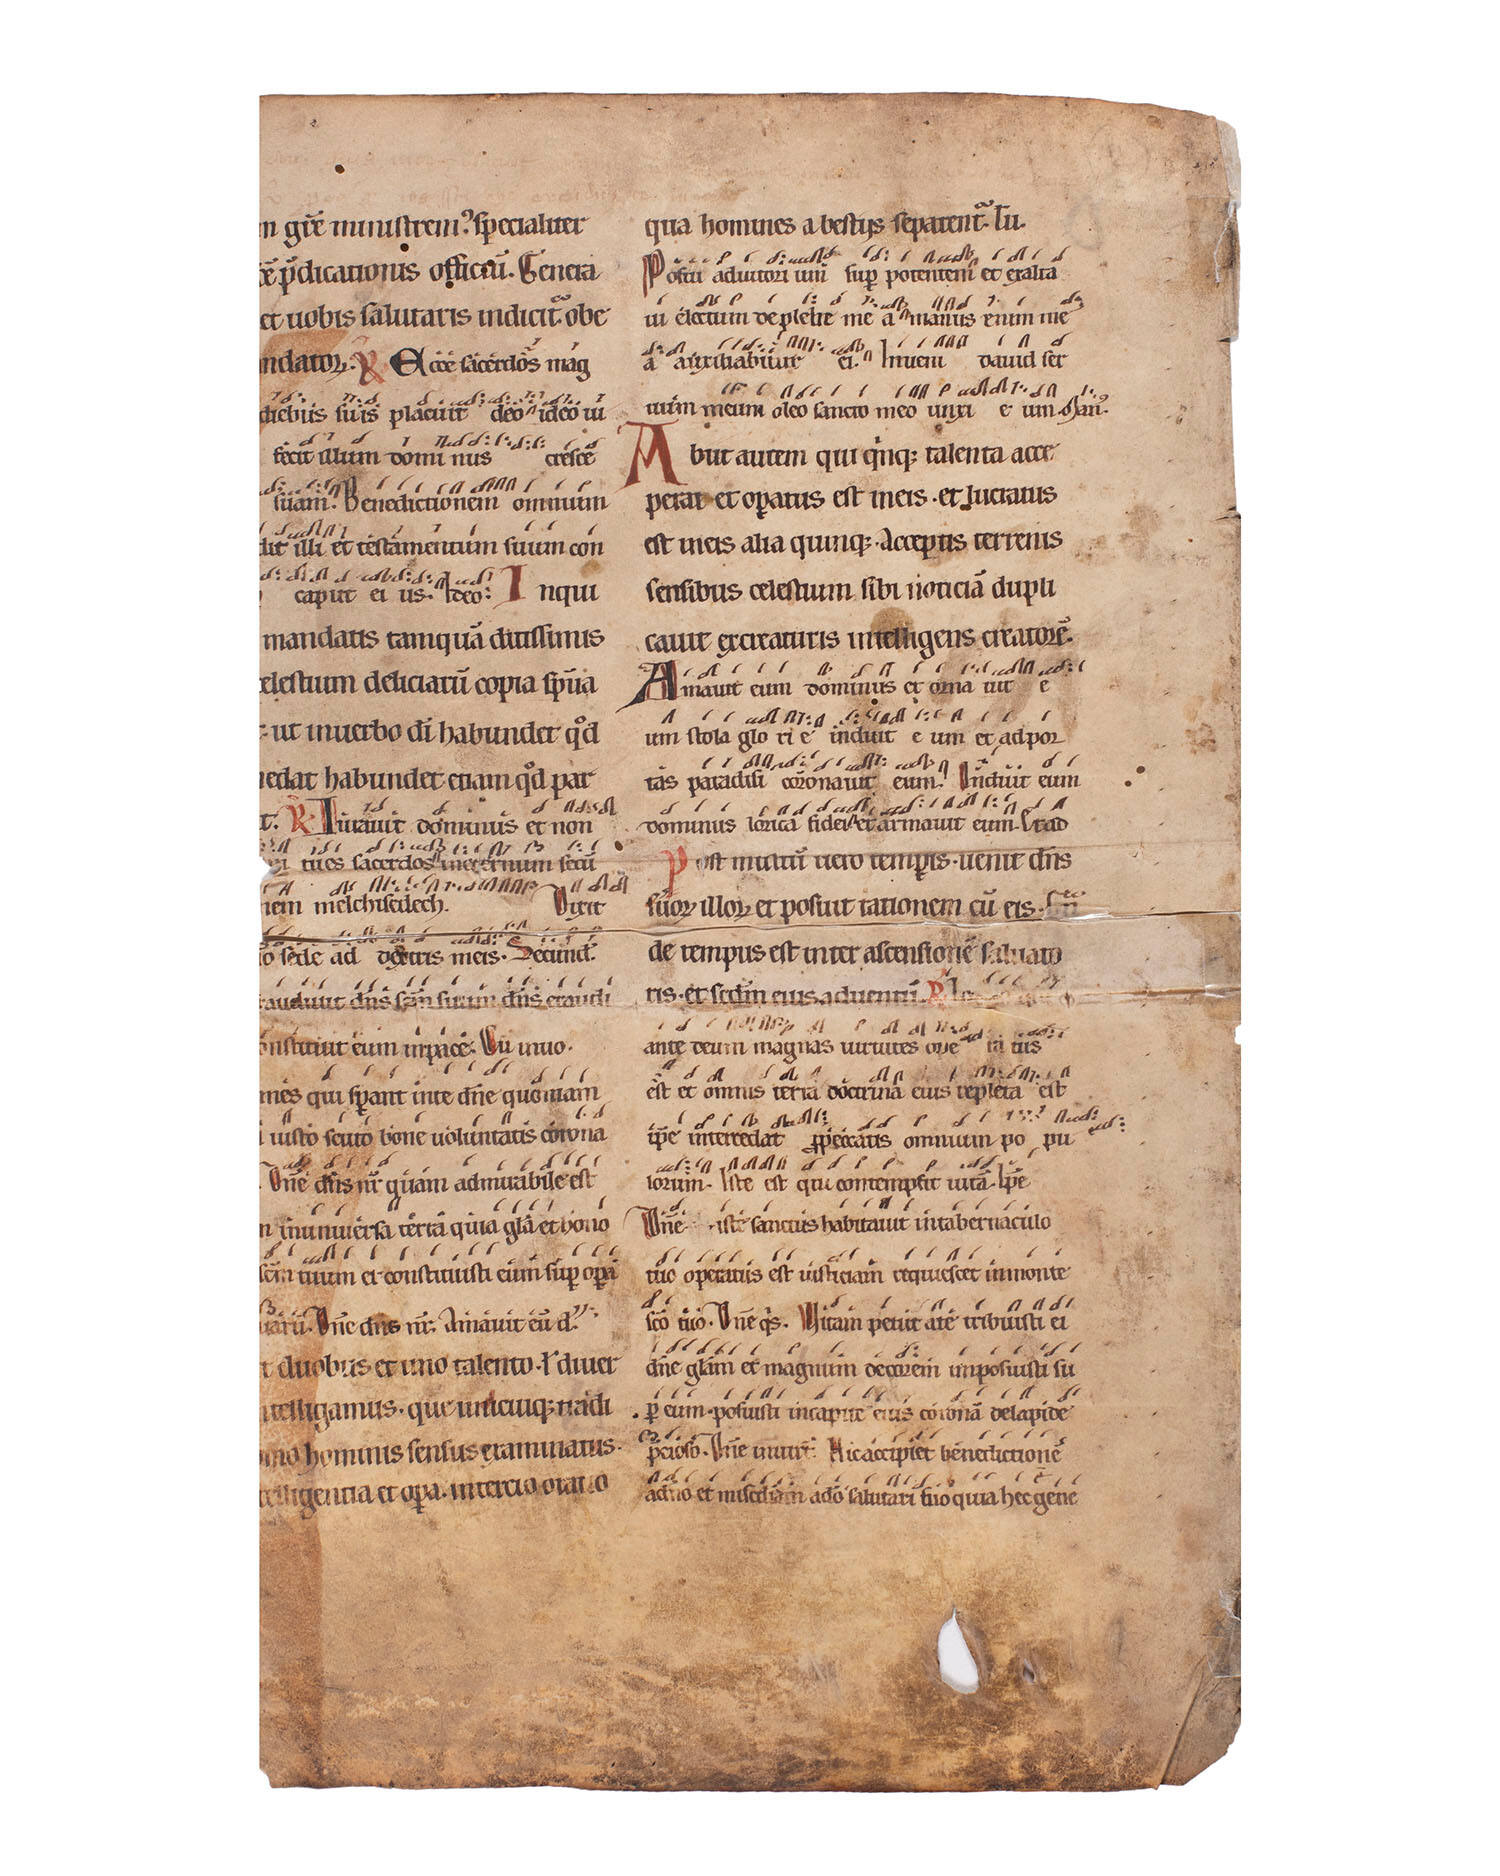 n gr̄e ministrem? specialiter
cē p̄dicationis officiū. Cetera
et uobis salutaris indicit᷑ obe
ndator̄. R̄ Ecce sacerdos mag
diebus suis placuit deo ideo iu
fecit illum domi nus cresce
suam. Benedictionem omnium
dit illi et testamentum suum con
caput ei us. Ideo. Inqui
mandatis tamquā ditissimis
elestium deliciarū copia sp̄ua
ut inuerbo dī habundet qd̊
nedat habundet etiam qd̊ par
t. R̄ Iurauit dominus et non
tu es sacerdos ineternum secū
nem melchisedech. Dixit
o sede ad dextris meis. Secund̄.
xaudiuit dn̄s sc̄m suum dn̄s exaudi
onstituit eum inpace. Cū inuo.
nes qui sp̄ant inte dn̄e quoniam
iusto scuto bone uoluntatis corona
Dn̄e dn̄s nr̄ quam admirabile est
n inuniuersa terra quia glā et hono
sc̄m tuum et constituisti eum sup̄ op̄a
uarū. Dn̄e dn̄s nr̄. Amauit eū d.
t duobus et uno talento. diuer
ntelligamus. que unicuiq; tradi
ono hominis sensus examinatus.
telligentia et op̄a. intercio oratio
qua homines a bestijs separent᷑. Tu.
Posui adiutori um sup̄ potentem et exalta
ui electum de plebe me a manus enim me
a auxiliabitur ei. Inueni dauid ser
uum meum oleo sancto meo unxi e um. Man᷑.
Abiit autem qui q̇nq; talenta acce
perat et op̄atus est ineis. et lucratus
est ineis alia quinq;. Acceptis terrenis
sensibus celestium sibi noticiā dupli
cauit excreaturis intelligens creatorē.
Amauit eum dominus et orna uit e
um stola glo ri e induit e um et ad por
tas paradisi coronauit eum. Induit eum
dominus lorica fidei et armauit eum. Et ad
Post multū uero temp̄is. uenit dn̄s
suor̄ illor̄ et posuit rationem cū eis.
de tempus est inter ascensionē saluato
ris. et sedm eius aduentū. R̄
ante deum magnas uirtutes ope ra tus
est et omnis terra doctrina eius repleta est
ip̄e intercedat p̄ peccatis omnium po pu
lorum. Iste est qui contempsit uitā. Ip̄e
Dn̄e iste sanctus habitauit intabernaculo
tuo operatus est iusticiam requiescet inmonte
sc̄o tuo. Dn̄e q̇s. Uitam petiit a te tribuisti ei
dn̄e glām et magnum decorem inposuisti su
p̄ eum. posuisti incapite eius coronā delapide
p̄cioso. Dn̄e inuirt᷑. Hic accipiet benedictionē
a dn̄o et mis̄diam a dō salutari suo quia hec gene